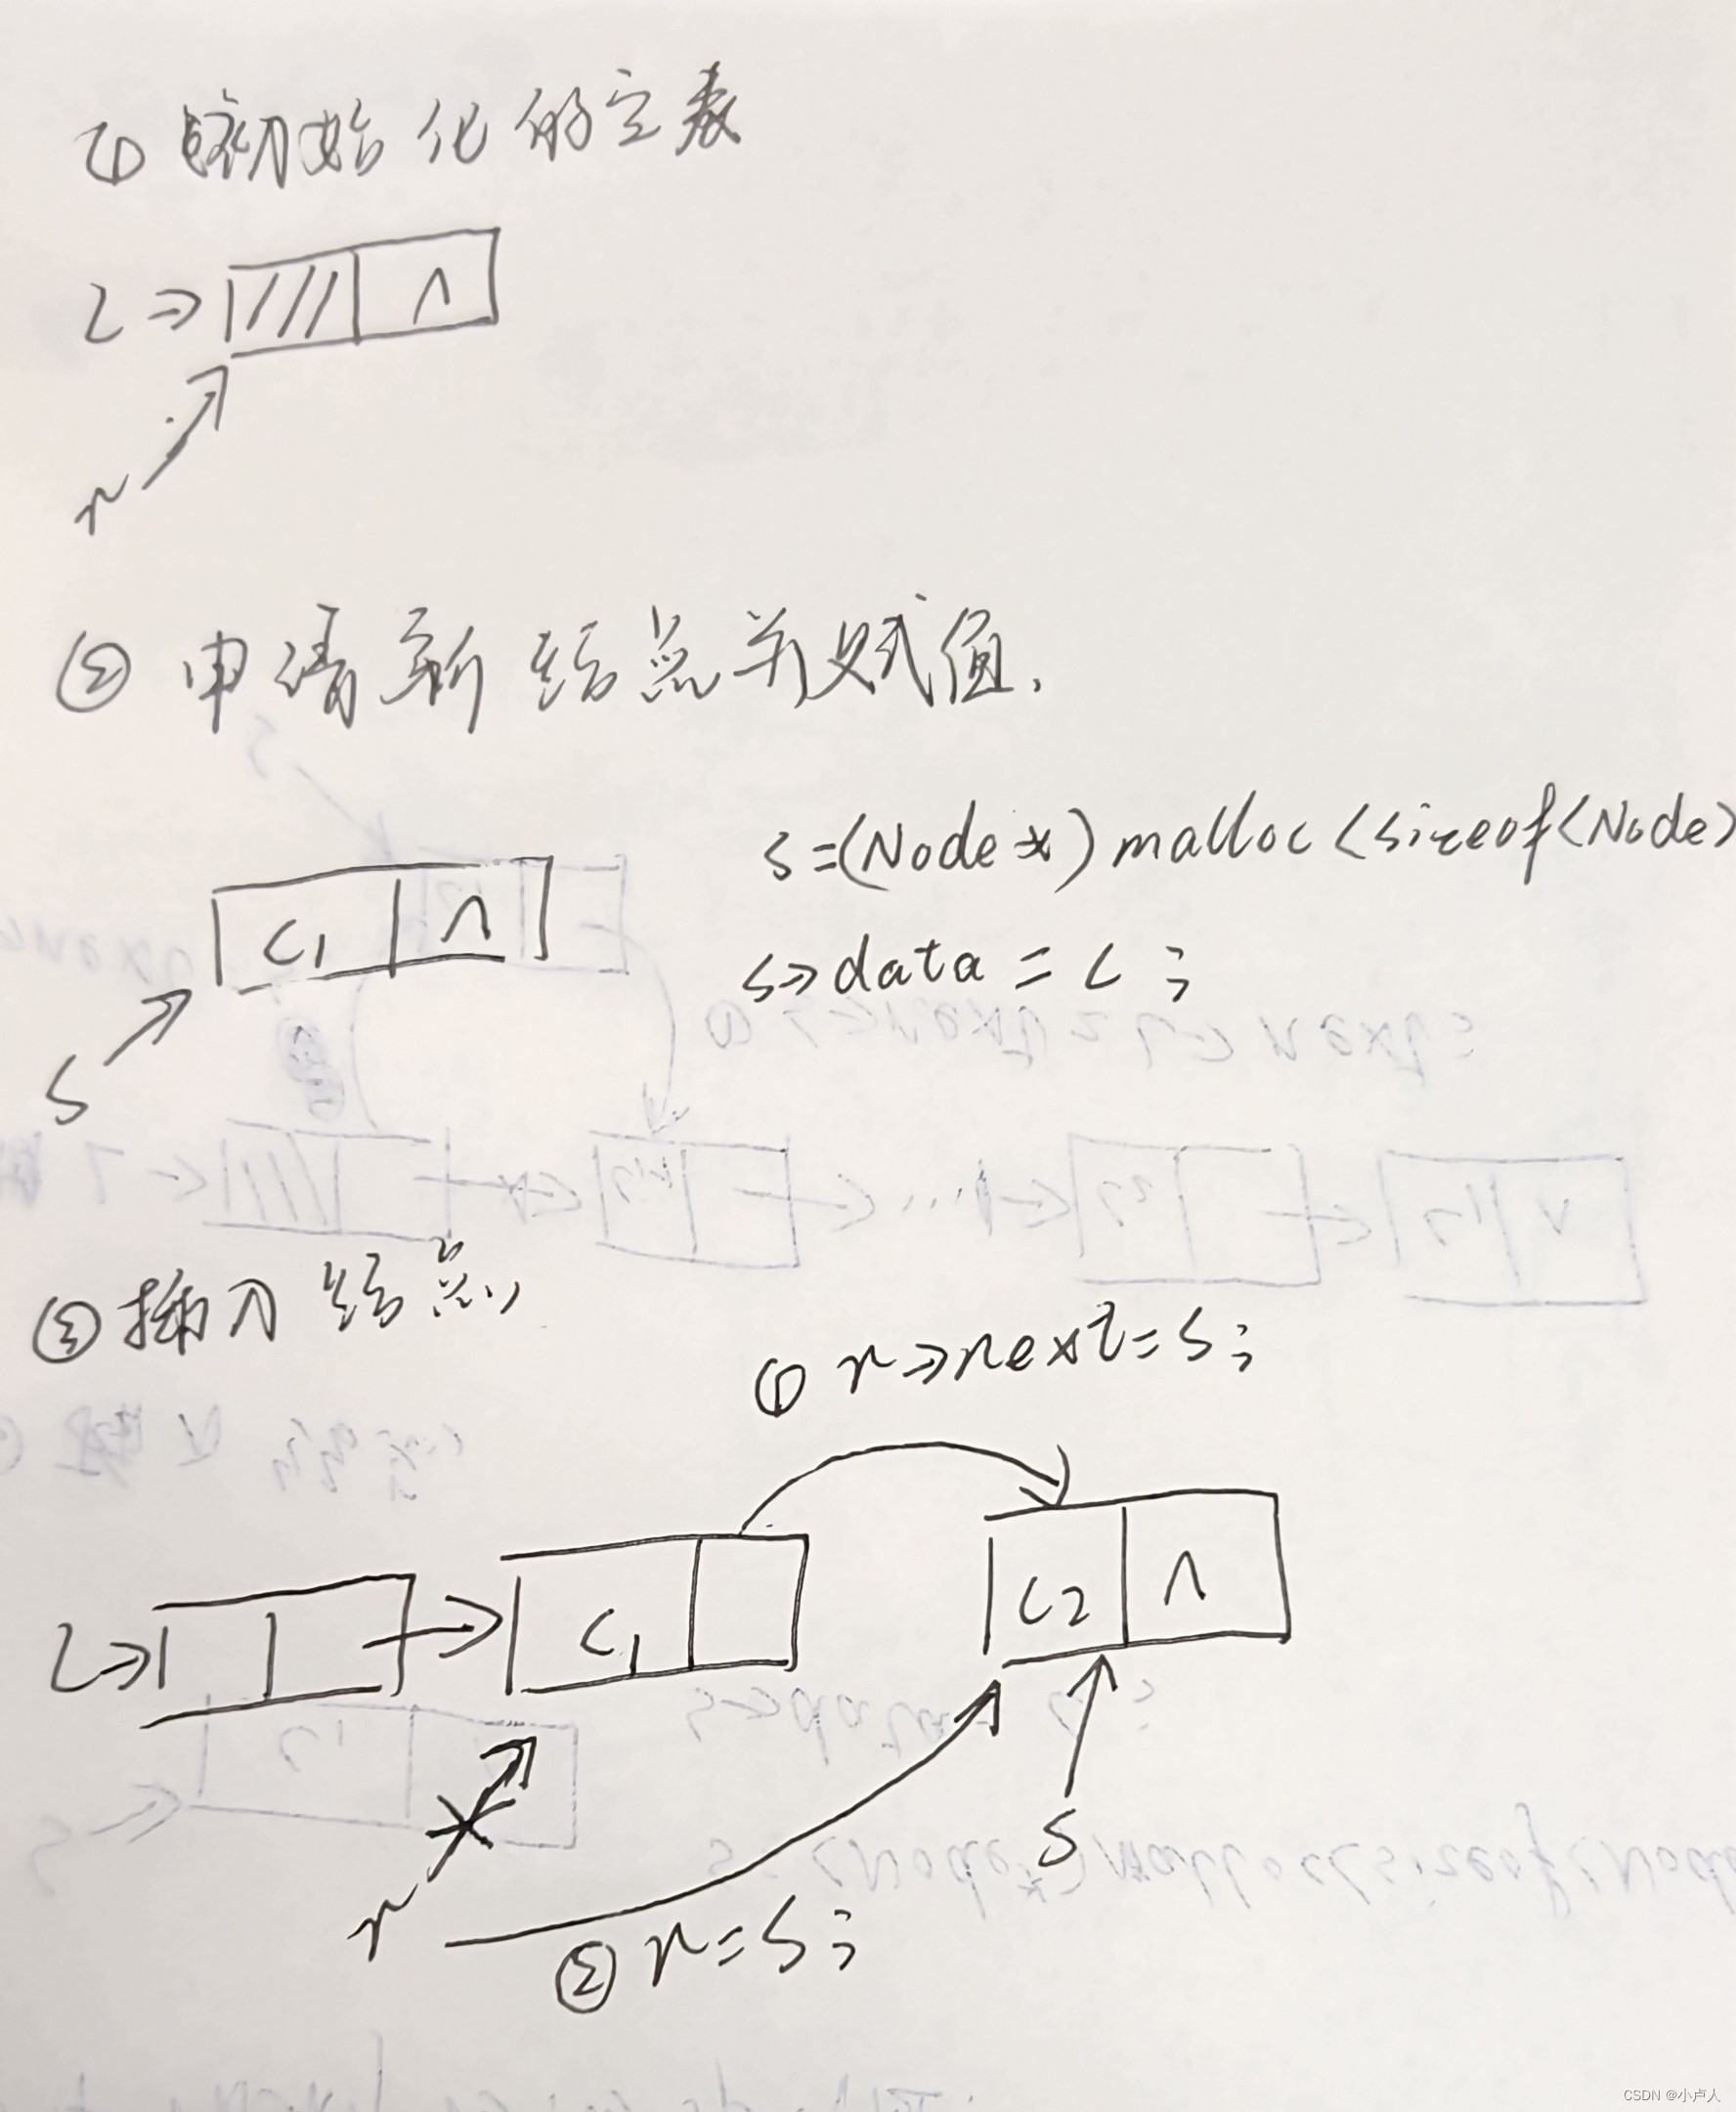 ① 初始化的空表
L→ ∧
r
② 申请新结点并赋值.
s=(Node*)malloc(sizeof(Node)
C1 ∧
s→data = c ;
s
③ 插入结点
① r→next=s;
L→ C1 C2 ∧
s
r
② r=s;
CSDN @小卢人